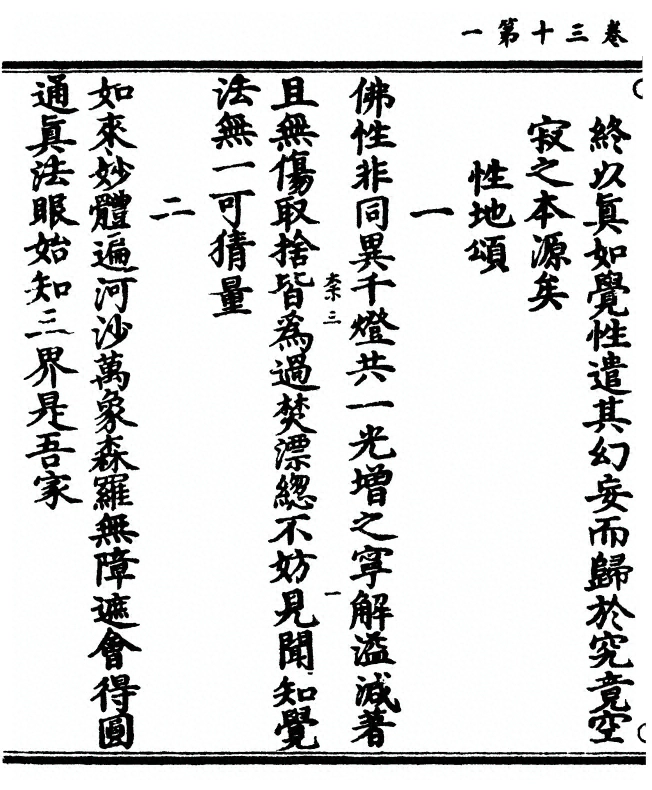 一第十三卷
終以眞如覺性遣其幻妄而歸於究竟空
寂之本源矣
性地頌
一
佛性非同異千燈共一光增之寧解溢減著
且無傷取捨皆爲過焚漂緫不妨見聞知覺
法無一可猜量
二
如來妙體遍河沙萬象森羅無障遮會得圓
通眞法眼始知三界是吾家